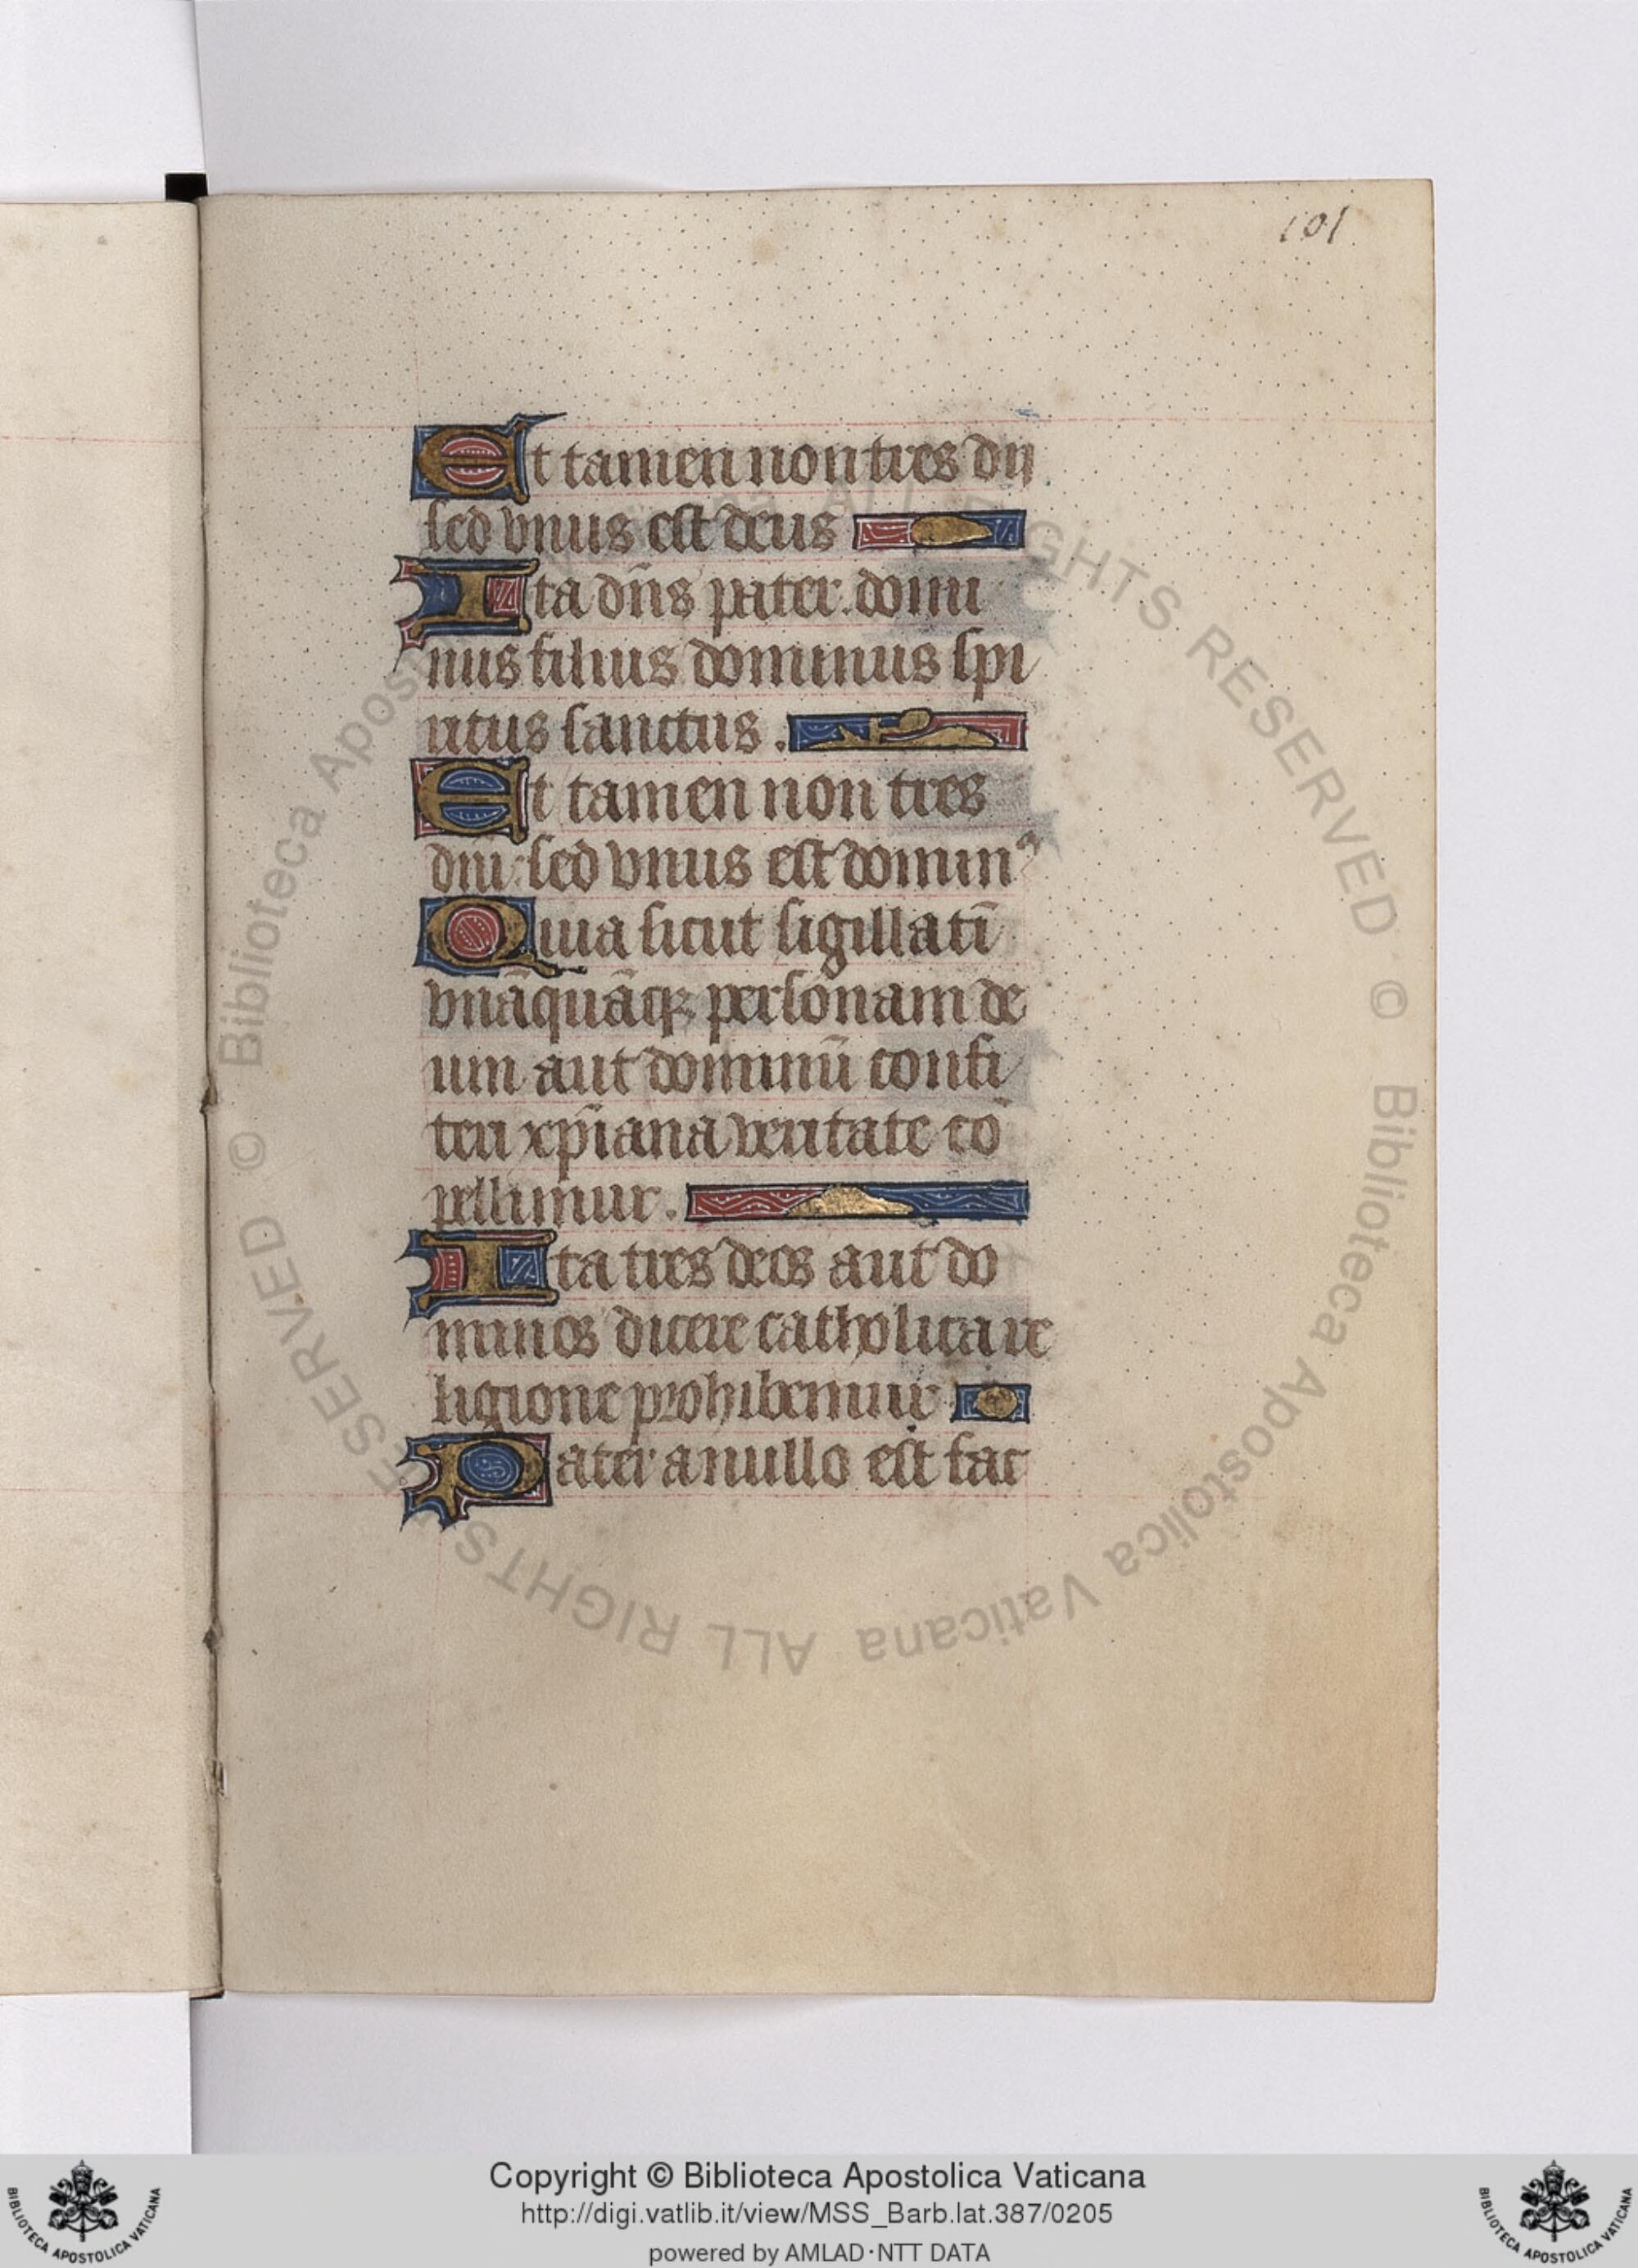 101
Et tamen non tres dij
sed vnus est deus
Ita dñs pater. domi
nus filius dominus spi
ritus sanctus.
Et tamen non tres
dñi. sed vnus est dominꝰ
Quia sicut sigillatĩ
vnãquãqꝫ personam de
um aut dominũ confi
teri xp̃iana veritate cõ
pellimur.
Ita tres deos aut do
minos dicere catholica re
ligione prohibemur
Pater a nullo est fac
© Biblioteca Apostolica Vaticana ALL RIGHTS RESERVED © Biblioteca Apostolica Vaticana ALL RIGHTS RESERVED
Copyright © Biblioteca Apostolica Vaticana
http://digi.vatlib.it/view/MSS_Barb.lat.387/0205
powered by AMLAD·NTT DATA
BIBLIOTECA APOSTOLICA VATICANA
BIBLIOTECA APOSTOLICA VATICANA